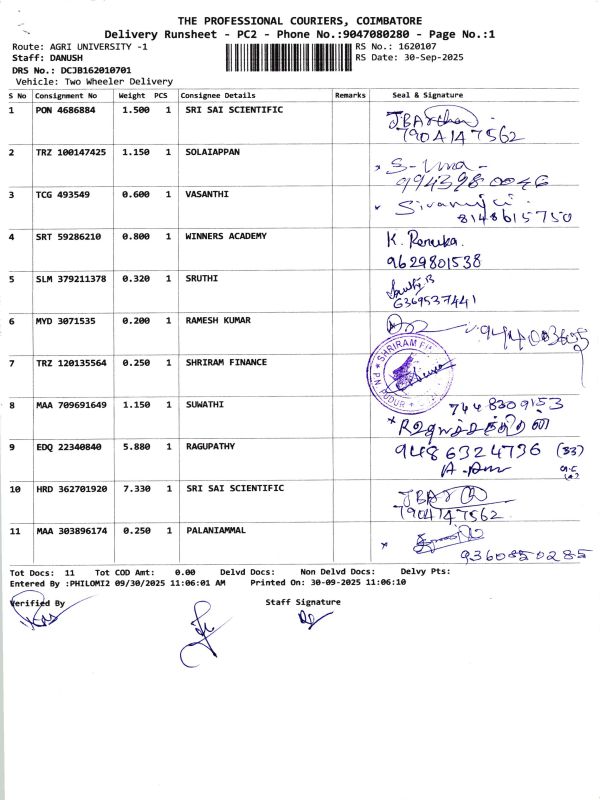 THE PROFESSIONAL COURIERS, COIMBATORE
Delivery Runsheet - PC2 - Phone No.:9047080280 - Page No.:1
Route: AGRI UNIVERSITY -1
RS No.: 1620107
Staff: DANUSH
RS Date: 30-Sep-2025
DRS No.: DCJB162010701
Vehicle: Two Wheeler Delivery
S No Consignment No Weight PCS Consignee Details Remarks Seal & Signature
1 PON 4686884 1.500 1 SRI SAI SCIENTIFIC
7904147562
2 TRZ 100147425 1.150 1 SOLAIAPPAN
S-Uma-
994398 0046
3 TCG 493549 0.600 1 VASANTHI
8148615750
4 SRT 59286210 0.800 1 WINNERS ACADEMY K. Renuka.
9629801538
5 SLM 379211378 0.320 1 SRUTHI
6369537441
6 MYD 3071535 0.200 1 RAMESH KUMAR
7 TRZ 120135564 0.250 1 SHRIRAM FINANCE
8 MAA 709691649 1.150 1 SUWATHI 7448309153
9 EDQ 22340840 5.880 1 RAGUPATHY 9486324736 (33)
10 HRD 362701920 7.330 1 SRI SAI SCIENTIFIC
7904147562
11 MAA 303896174 0.250 1 PALANIAMMAL
9360850285
Tot Docs: 11 Tot COD Amt: 0.00 Delvd Docs: Non Delvd Docs: Delvy Pts:
Entered By :PHILOMI2 09/30/2025 11:06:01 AM Printed On: 30-09-2025 11:06:10
Verified By Staff Signature